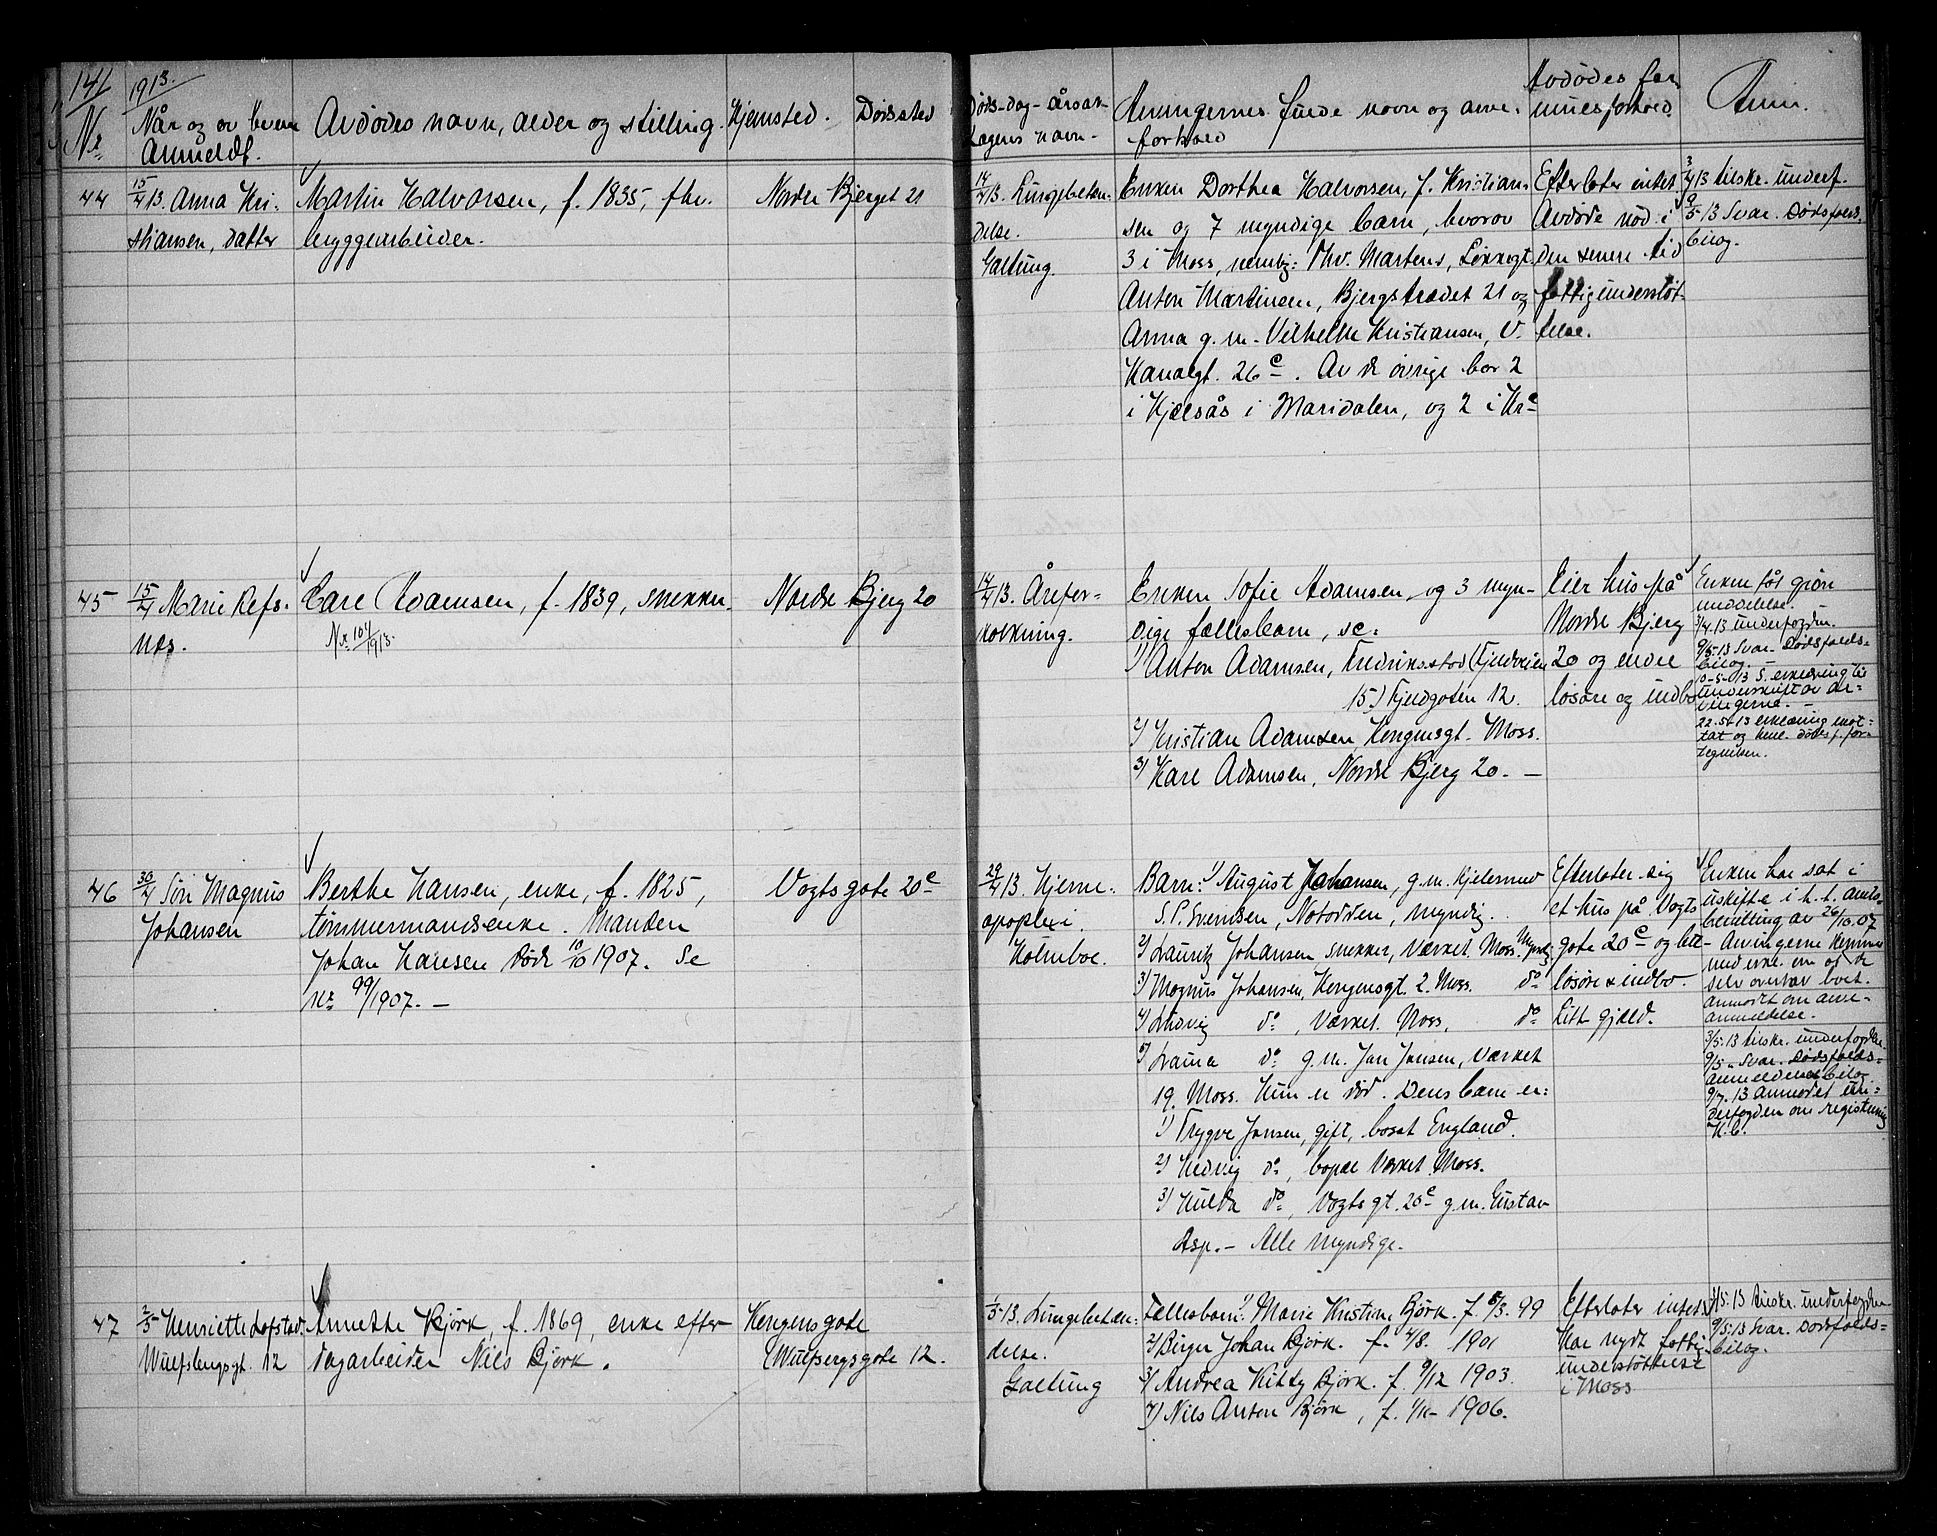 141
1913.
Nr.
Når og av hvem
Anmeldt.
Avdødes navn, alder og stilling.
Hjemsted.
Dødssted
Døds-dag- årsak-
Lægens navn-
Arvingernes fulde navn og arve-
forhold
Avdødes for
muesforhold.
Anm.
44
15/4 13. Anna Kri-
stiansen, datter
Martin Halvorsen, f. 1835, fhv.
bryggearbeider.
Nordre Bjerget 21
14/4 13. Lungebeten-
delse.
Galtung.
Enken Dorthea Halvorsen, f. Kristian-
sen og 7 myndige barn, hvorav
3 i Moss, nemlig: Thv. Martens,
Anton Martinsen, Bjergstrædet 21 og
Anna g. m. Vilhelm Kristiansen, V.
Kanalgt. 26c. Av de øvrige bor 2
i Kjelsås i Maridalen, og 2 i Kra
Efterlater intet
Avdøde nød i
den senere tid
fattigunderstøt-
telse.
3/4 13 tilskr. underf.
9/5-13 Svar. Dødsfalds-
bilag.
45
15/4 Marie Refs-
nes.
Carl Adamsen, f. 1839, snekker.
Nr 104/1913.
Nordre Bjerg 20
14/4 13. Årefor-
kalkning.
Enken Sofie Adamsen og 3 myn-
dige fællesbarn, se:
1) Anton Adamsen, Fredriksstad (Fjeldveien
15) Fjeldgaten 12.
2) Kristian Adamsen, Kongensgt. Moss.
3) Karl Adamsen, Nordre Bjerg 20. -
Eier hus på
Nordre Bjerg
20 og endel
løsøre og indbo
Enken får gjøre
meddelelse.
3/4.13 underfogden.
9/5-13 Svar. Dødsfalds-
bilag. -
10-5-013 S. erklæring til
underskrift av ar-
vingerne. -
22.5-13 erklæring mot-
tat og dødsf. for-
tegnelsen.
46
30/4 Søn Magnus
Johansen
Berthe Hansen, enke, f. 1825,
tømmermandsenke. Manden
Johan Hansen døde 10/10 1907. Se
nr 99/1907. -
Vogtsgate 20c
29/4 13. Hjerne-
apoplexi.
Holmboe.
Barn: 1) August Johansen, g. m. Kjelsmed
S. P. Svendsen, Notodden, myndig.
2) Lauritz Johansen, snekker, Værket. Moss. Myndig
3) Magnus Johansen, Kongensgt. 2. Moss. do
4) Ludvig do, Værket. Moss. do
5) Laura do g. m. Jan Jansen, Værket
19. Moss. Hun er død. Dens barn er:
1) Trygve Jansen, gift, bosat England.
2) Hedvig do, bopæl Værket. Moss.
3) Hulda do, Vogtsgt. 20c g. m. Gustav
Asp. - Alle myndige.
Efterlater sig
et hus på Vogts
gate 20c og litt
løsøre & indbo.
Litt gjæld.
Enken har sat i
uskifte i h. t. amts-
bevilling av 26/10.07
- Arvingerne kommer
med erkl. om at de
selv overtar boet.
Anmodt om arve-
anmeldelse.
3/5.13 tilskr. underfogden.
9/5 " Svar. Dødsfalds-
anmeldelses bilag
9/7.13 Anmodet un-
derfogden om registrering
H. C.
47
2/5 Henriette Løfstad.
Wulfsbergsgt. 12
Annette Bjørk, f. 1869, enke efter
dagarbeider Nils Bjørk.
Kongensgate
Wulfsbergsgate 12.
1/5-13. Lungebeten-
delse.
Galtung
Fællesbarn: 1) Marie Kristine Bjørk. f. 5/3. 99
2) Birger Johan Bjørk. f. 4/8. 1901
3) Andrea Kitty Bjørk. f. 9/12 1903.
4) Nils Anton Bjørk, f. 1/11- 1906.
Efterlater intet.
Har nydt fattig-
understøttelse
i Moss
3/5.13 tilskr. underfogden
9/5.13 Svar. Dødsfalds-
bilag.